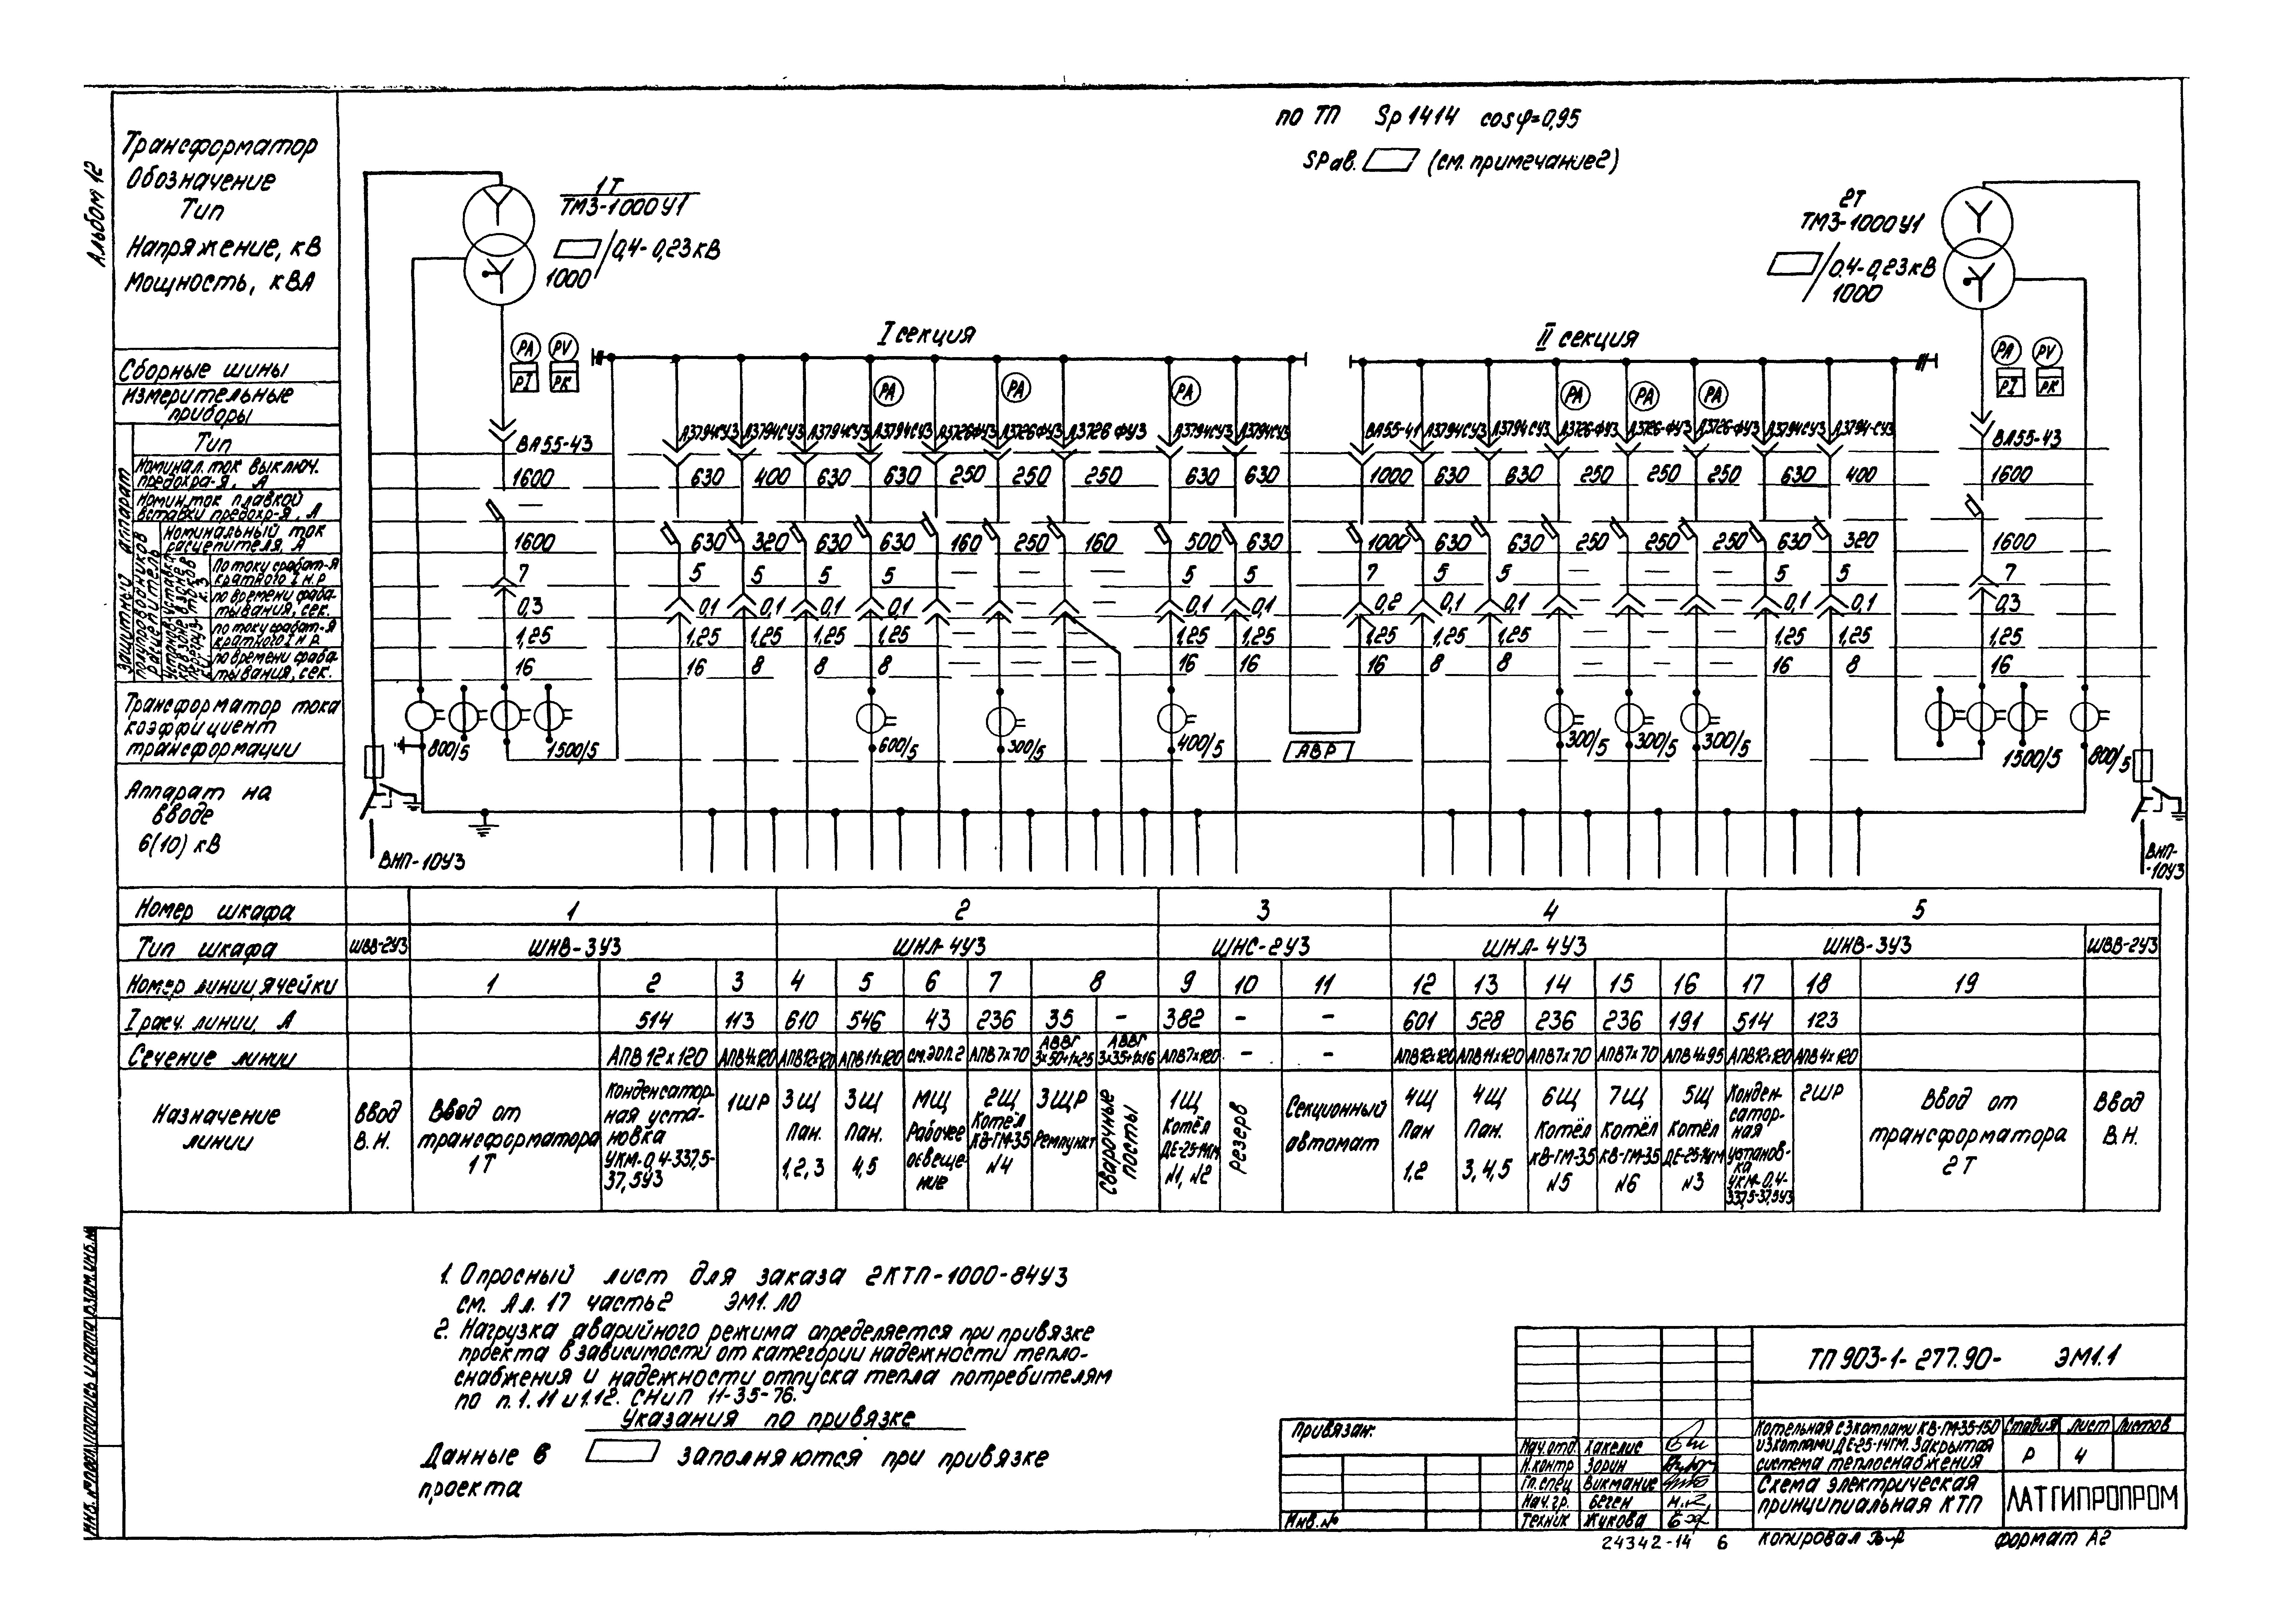 Альбом 12
по ТП Sр 1414 cosφ=0,95
Sрав. (см. примечание 2)
Трансформатор
Обозначение
Тип
Напряжение, кВ
Мощность, кВА
1Т
ТМЗ-1000У1
0,4-0,23кВ
1000
2Т
ТМЗ-1000У1
0,4-0,23кВ
1000
I секция
II секция
Сборные шины
Измерительные
приборы
PA PV
PI PK
PA PA PA
PA PA PA
PA PV
PI PK
Защитный аппарат
Тип
ВА55-43 А3794СУЗ А3794СУЗ А3794СУЗ А3794СУЗ А3726ФУЗ А3726ФУЗ А3726ФУЗ А3794СУЗ А3794СУЗ ВА55-41 А3794СУЗ А3794СУЗ А3726-ФУЗ А3726-ФУЗ А3726-ФУЗ А3794СУЗ А3794-СУЗ ВА55-43
Номинал. ток выключ.
предохра-я, А
1600 630 400 630 630 250 250 250 630 630 1000 630 630 250 250 250 630 400 1600
Номин.ток плавкой
вставки предохр-я, А
—
Номинальный ток
расцепителя, А
1600 630 320 630 630 160 250 160 500 630 1000 630 630 250 250 250 630 320 1600
По току срабат-я
кратного I н.р
7 5 5 5 5 — — — 5 5 7 5 5 — — — 5 5 7
по времени сраба-
тывания, сек.
0,3 0,1 0,1 0,1 0,1 — — — 0,1 0,1 0,2 0,1 0,1 — — — 0,1 0,1 0,3
по току срабат-я
кратного I н.р.
1,25 1,25 1,25 1,25 1,25 — — — 1,25 1,25 1,25 1,25 1,25 — — — 1,25 1,25 1,25
по времени сраба-
тывания, сек.
16 16 8 8 8 — — — 16 16 16 8 8 — — — 16 8 16
Трансформатор тока
коэффициент
трансформации
800/5 1500/5 600/5 300/5 400/5 АВР 300/5 300/5 300/5 1500/5 800/5
Аппарат на
вводе
6(10) кВ
ВНП-10УЗ
ВНП-
-10УЗ
Номер шкафа 1 2 3 4 5
Тип шкафа ШВВ-2УЗ ШНВ-3УЗ ШНЛ-4УЗ ШНС-2УЗ ШНЛ-4УЗ ШНВ-3УЗ ШВВ-2УЗ
Номер линии, ячейки 1 2 3 4 5 6 7 8 9 10 11 12 13 14 15 16 17 18 19
I расч. линии, А 514 113 610 546 43 236 35 - 382 - - 601 528 236 236 191 514 123
Сечение линии АПВ 12х120 АПВ4х120 АПВ12х120 АПВ11х120 см.ЭОЛ.2 АПВ7х70 АВВГ 3х50+1х25 АВВГ 3х35+1х16 АПВ7х120 - - АПВ12х120 АПВ11х120 АПВ7х70 АПВ7х70 АПВ 4х95 АПВ12х120 АПВ 4х120
Назначение
линии
Ввод
В.Н.
Ввод от
трансформатора
1Т
Конденсатор-
ная уста-
новка
УКМ-0,4-337,5-
37,5УЗ
1ШР
3Щ
Пан.
1,2,3
3Щ
Пан.
4,5
МЩ
Рабочее
освеще-
ние
2Щ
Котёл
КВ-ГМ-35
N4
3ШР
Ремпункт
Сварочные
посты
1Щ
Котёл
ДЕ-25-14ГМ
N1, N2
Резерв
Секционный
автомат
4Щ
Пан
1,2
4Щ
Пан.
3,4,5
6Щ
Котёл
КВ-ГМ-35
N5
7Щ
Котёл
КВ-ГМ-35
N6
5Щ
Котёл
ДЕ-25-14ГМ
N3
Конден-
сатор-
ная
установ-
ка
УКМ-0,4-
337,5-37,5УЗ
2ШР
Ввод от
трансформатора
2Т
Ввод
В.Н.
1. Опросный лист для заказа 2КТП-1000-84УЗ
см. Ал. 17 часть 2 ЭМ1. ЛО
2. Нагрузка аварийного режима определяется при привязке
проекта в зависимости от категории надежности тепло-
снабжения и надежности отпуска тепла потребителям
по п.1.11 и 1.12. СНиП 11-35-76.
Указания по привязке
Данные в заполняются при привязке
проекта
Привязан:
Инв.№
Нач.отд. Хакелис
Н.контр Зорин
Гл.спец Викмание
Нач.гр. Беген
Техник Жукова
ТП 903-1-277.90- ЭМ1.1
Котельная с 3 котлами КВ-ГМ-35-150
и 3 котлами ДЕ-25-14ГМ. Закрытая
система теплоснабжения
Стадия Лист Листов
Р 4
Схема электрическая
принципиальная КТП
ЛАТГИПРОПРОМ
24342-14 6
Копировал
Формат А2
Инв. № подл. Подпись и дата Взам.инв.№